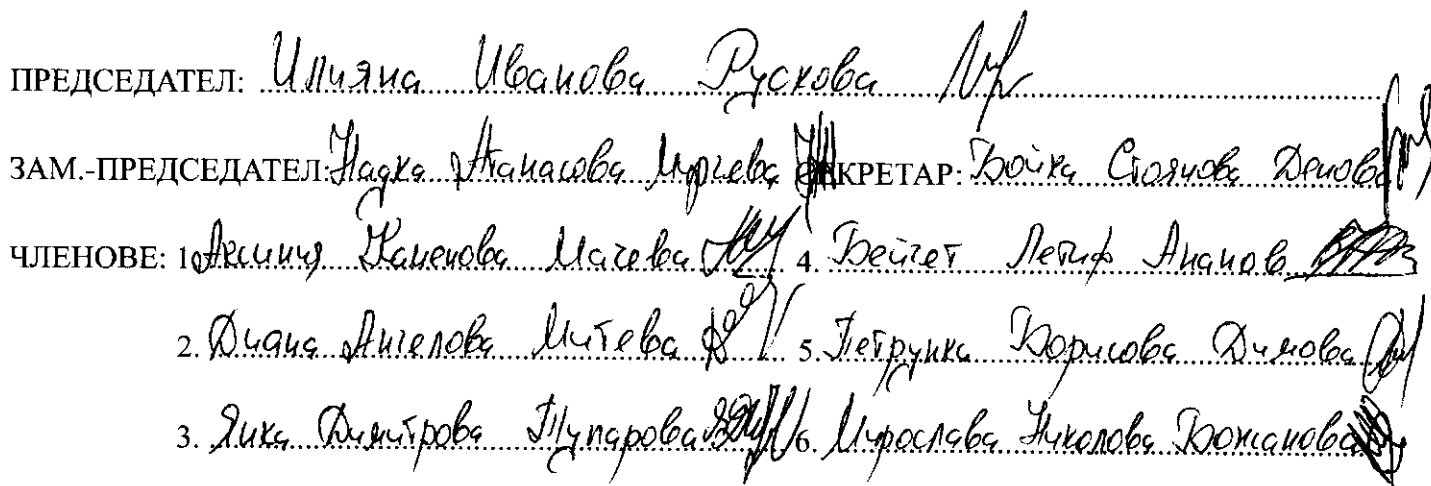 ПРЕДСЕДАТЕЛ: Илияна Иванова Рускова
ЗАМ.-ПРЕДСЕДАТЕЛ: Надка Атанасова Мирчева СЕКРЕТАР: Бойка Стоянова Демова
ЧЛЕНОВЕ: 1. Аксиния Каменова Мачева 4. Бейчет Летиф Ананов
2. Диана Ангелова Митева 5. Петрунка Борисова Димова
3. Янка Димитрова Тупарова 6. Мирослава Николова Божанова